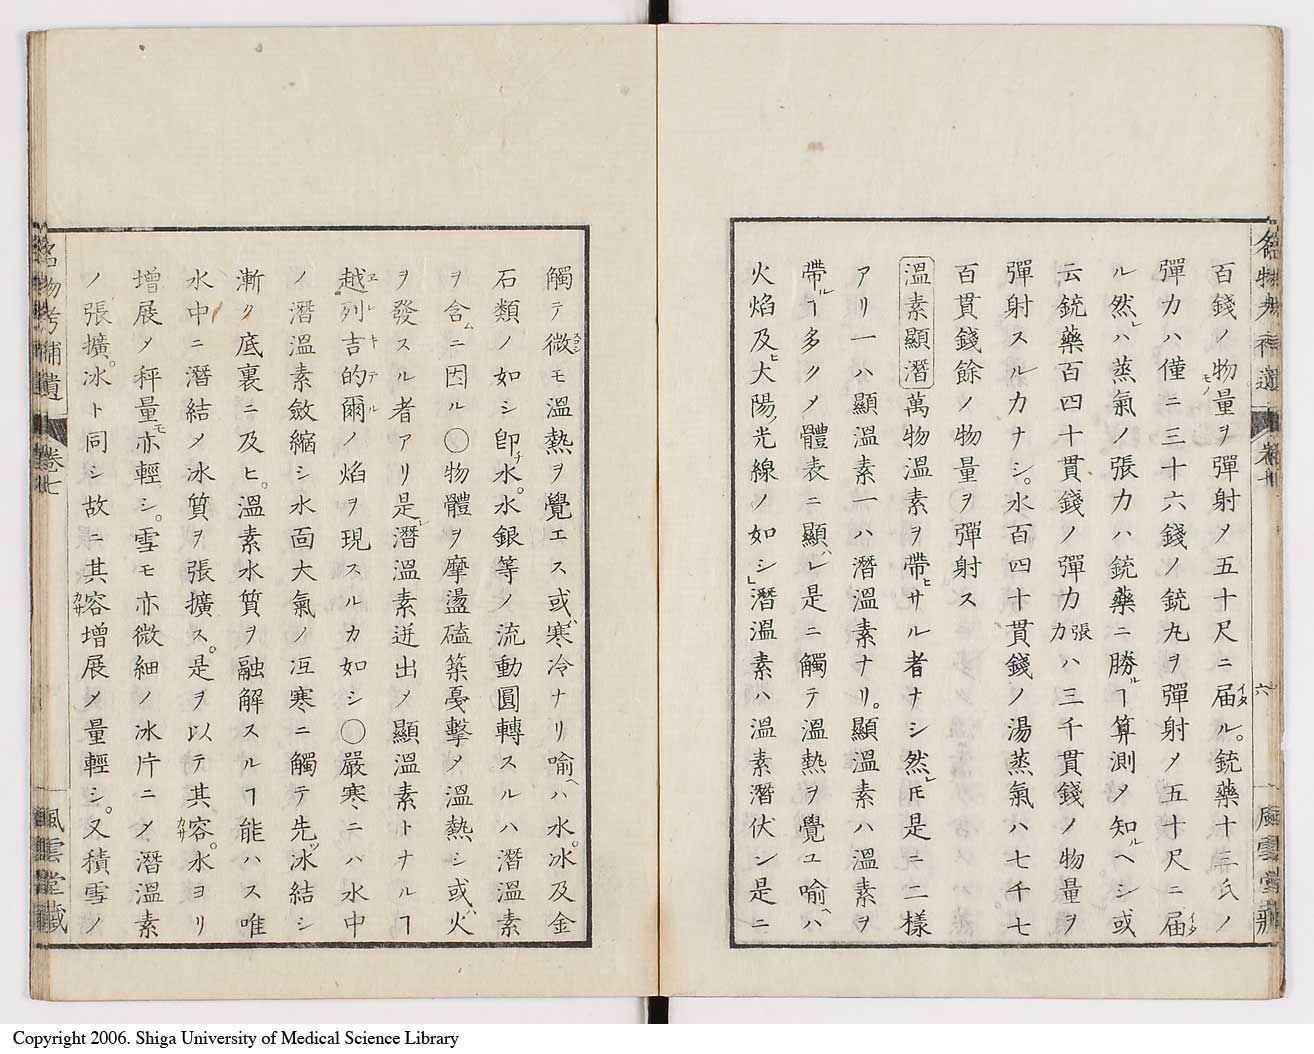 百錢ノ物量ヲ彈射メ五十尺ニ届ル。銃藥十三氏ノ
彈力ハ僅ニ三十六錢ノ銃丸ヲ彈射メ五十尺ニ届
ル然レハ蒸氣ノ張力ハ銃藥ニ勝ルヿ算測メ知ルヘシ或
云銃藥百四十貫錢ノ彈力張力ハ三千貫錢ノ物量ヲ
彈射スルカナシ。水百四十貫錢ノ湯蒸氣ハ七千七
百貫錢餘ノ物量ヲ彈射ス
溫素顯潛 萬物溫素ヲ帶ヒサル者ナシ然レ𪜈是ニ二樣
アリ一ハ顯溫素一ハ潛溫素ナリ。顯溫素ハ溫素ヲ
帶ルヿ多クメ體表ニ顯ハレ是ニ觸テ溫熱ヲ覺ユ喻ヘハ
火焰及ヒ大陽ノ光線ノ如シ」潛溫素ハ溫素潛伏シ是ニ
觸テ微モ溫熱ヲ覺エス或ハ寒冷ナリ喻ヘハ水。冰及金
石類ノ如シ卽チ水。水銀等ノ流動圓轉スルハ潛溫素
ヲ含ムニ因ル〇物體ヲ摩盪磕築戞擊メ溫熱シ或ハ火
ヲ發スル者アリ是レ潛溫素迸出メ顯溫素トナルヿ
越列吉的爾ノ焰ヲ現スルカ如シ〇嚴寒ニハ水中
ノ潛溫素斂縮シ水面大氣ノ冱寒ニ觸テ先ツ冰結シ
漸ク底裏ニ及ヒ。溫素水質ヲ融解スルヿ能ハス唯
水中ニ潛結メ冰質ヲ張擴ス。是ヲ以テ其容。水ヨリ
增展メ秤量モ亦輕シ。雪モ亦微細ノ冰片ニメ潛溫素
ノ張擴。冰ト同シ故ニ其容增展メ量輕シ。又積雪ノ
名物考補遺 卷七 風雲堂藏
Copyright 2006. Shiga University of Medical Science Library